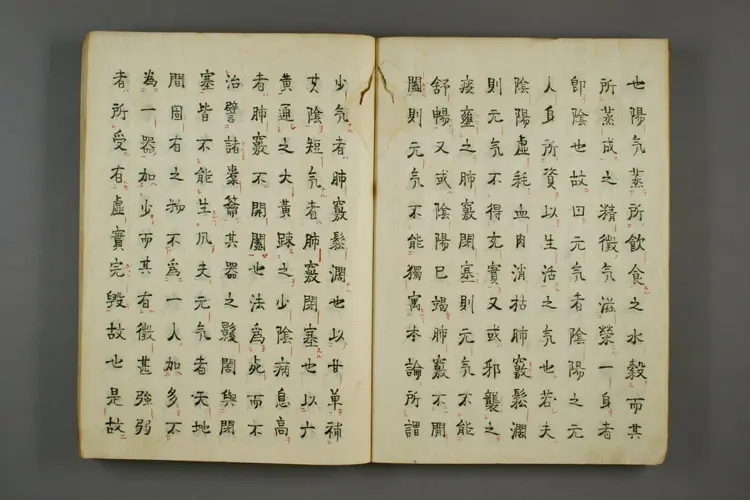 也陽气蒸所飲食之水穀而其
所蒸成之精微气滋榮一身者
卽陰也故曰元气者陰陽之元
人身所資以生活之气也若夫
陰陽虛耗血肉消枯肺竅鬆濶
則元气不得充實又或邪襲之
痰壅之肺竅閉塞則元气不能
舒暢又或陰陽已竭肺竅不開
闔則元气不能獨寓本論所謂
少气者肺竅鬆濶也以甘草補
陰短气者肺竅閉塞也以大
黃通之大黃踈之少陰病息高
者肺竅不開闔也法爲死而不
治譬諸橐籥其器之鬆闊與閉
塞皆不能生风夫元气者天地
間固有之物不爲一人加多不
為一器加少而其有微甚強弱
者所受有虛實完毀故也是故